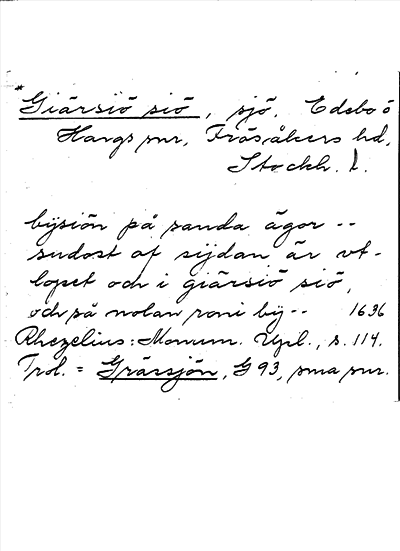 * Giärsiö siö, sjö. Edebo o
Hargs snr, Frösåkers hd,
Stockh. l.
bysiön på sanda ägor --
sudost af sijdan är vt-
lopet och i giärsiö siö,
och på nolan roni by-- 1636
Rhezelius: Monum. Upl., s. 114.
Trol. = Grärsjön, G 93, sma snr.